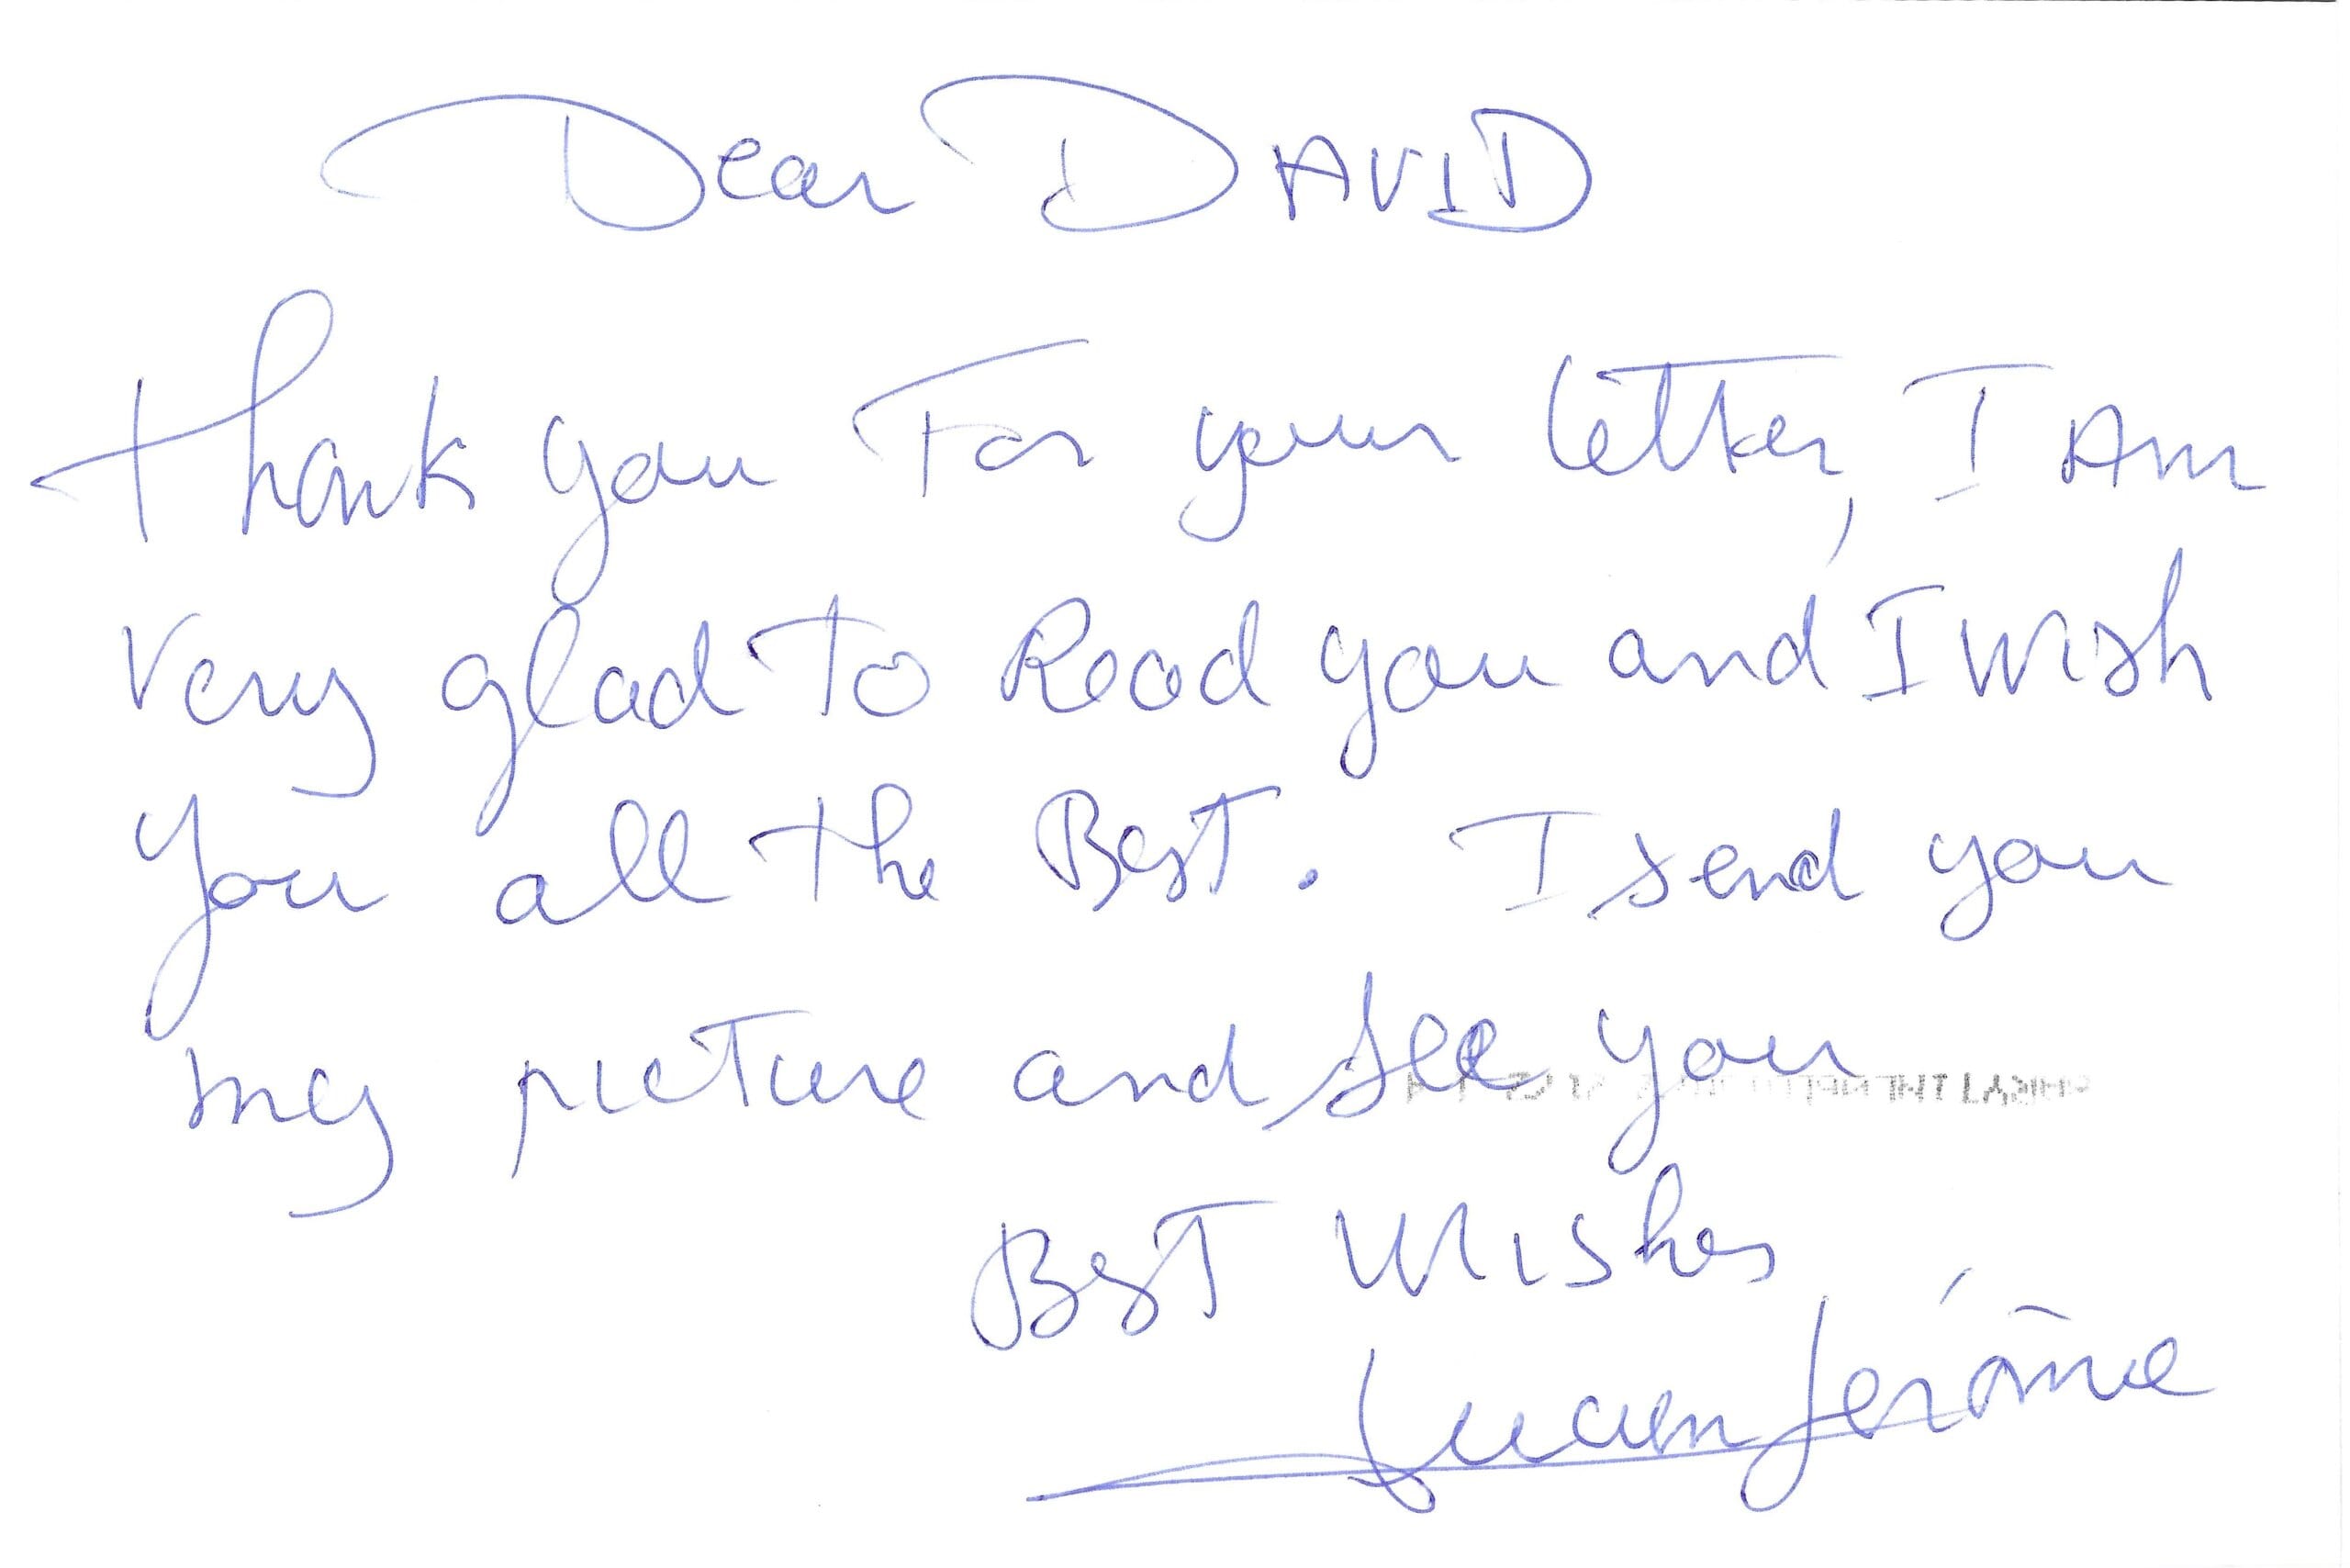 Dear DAVID
Thank you For your letter, I Am
Very glad To Read you and I Wish
you all the Best. I send you
my picture and see you
Best Wishes
Lucien Jérôme